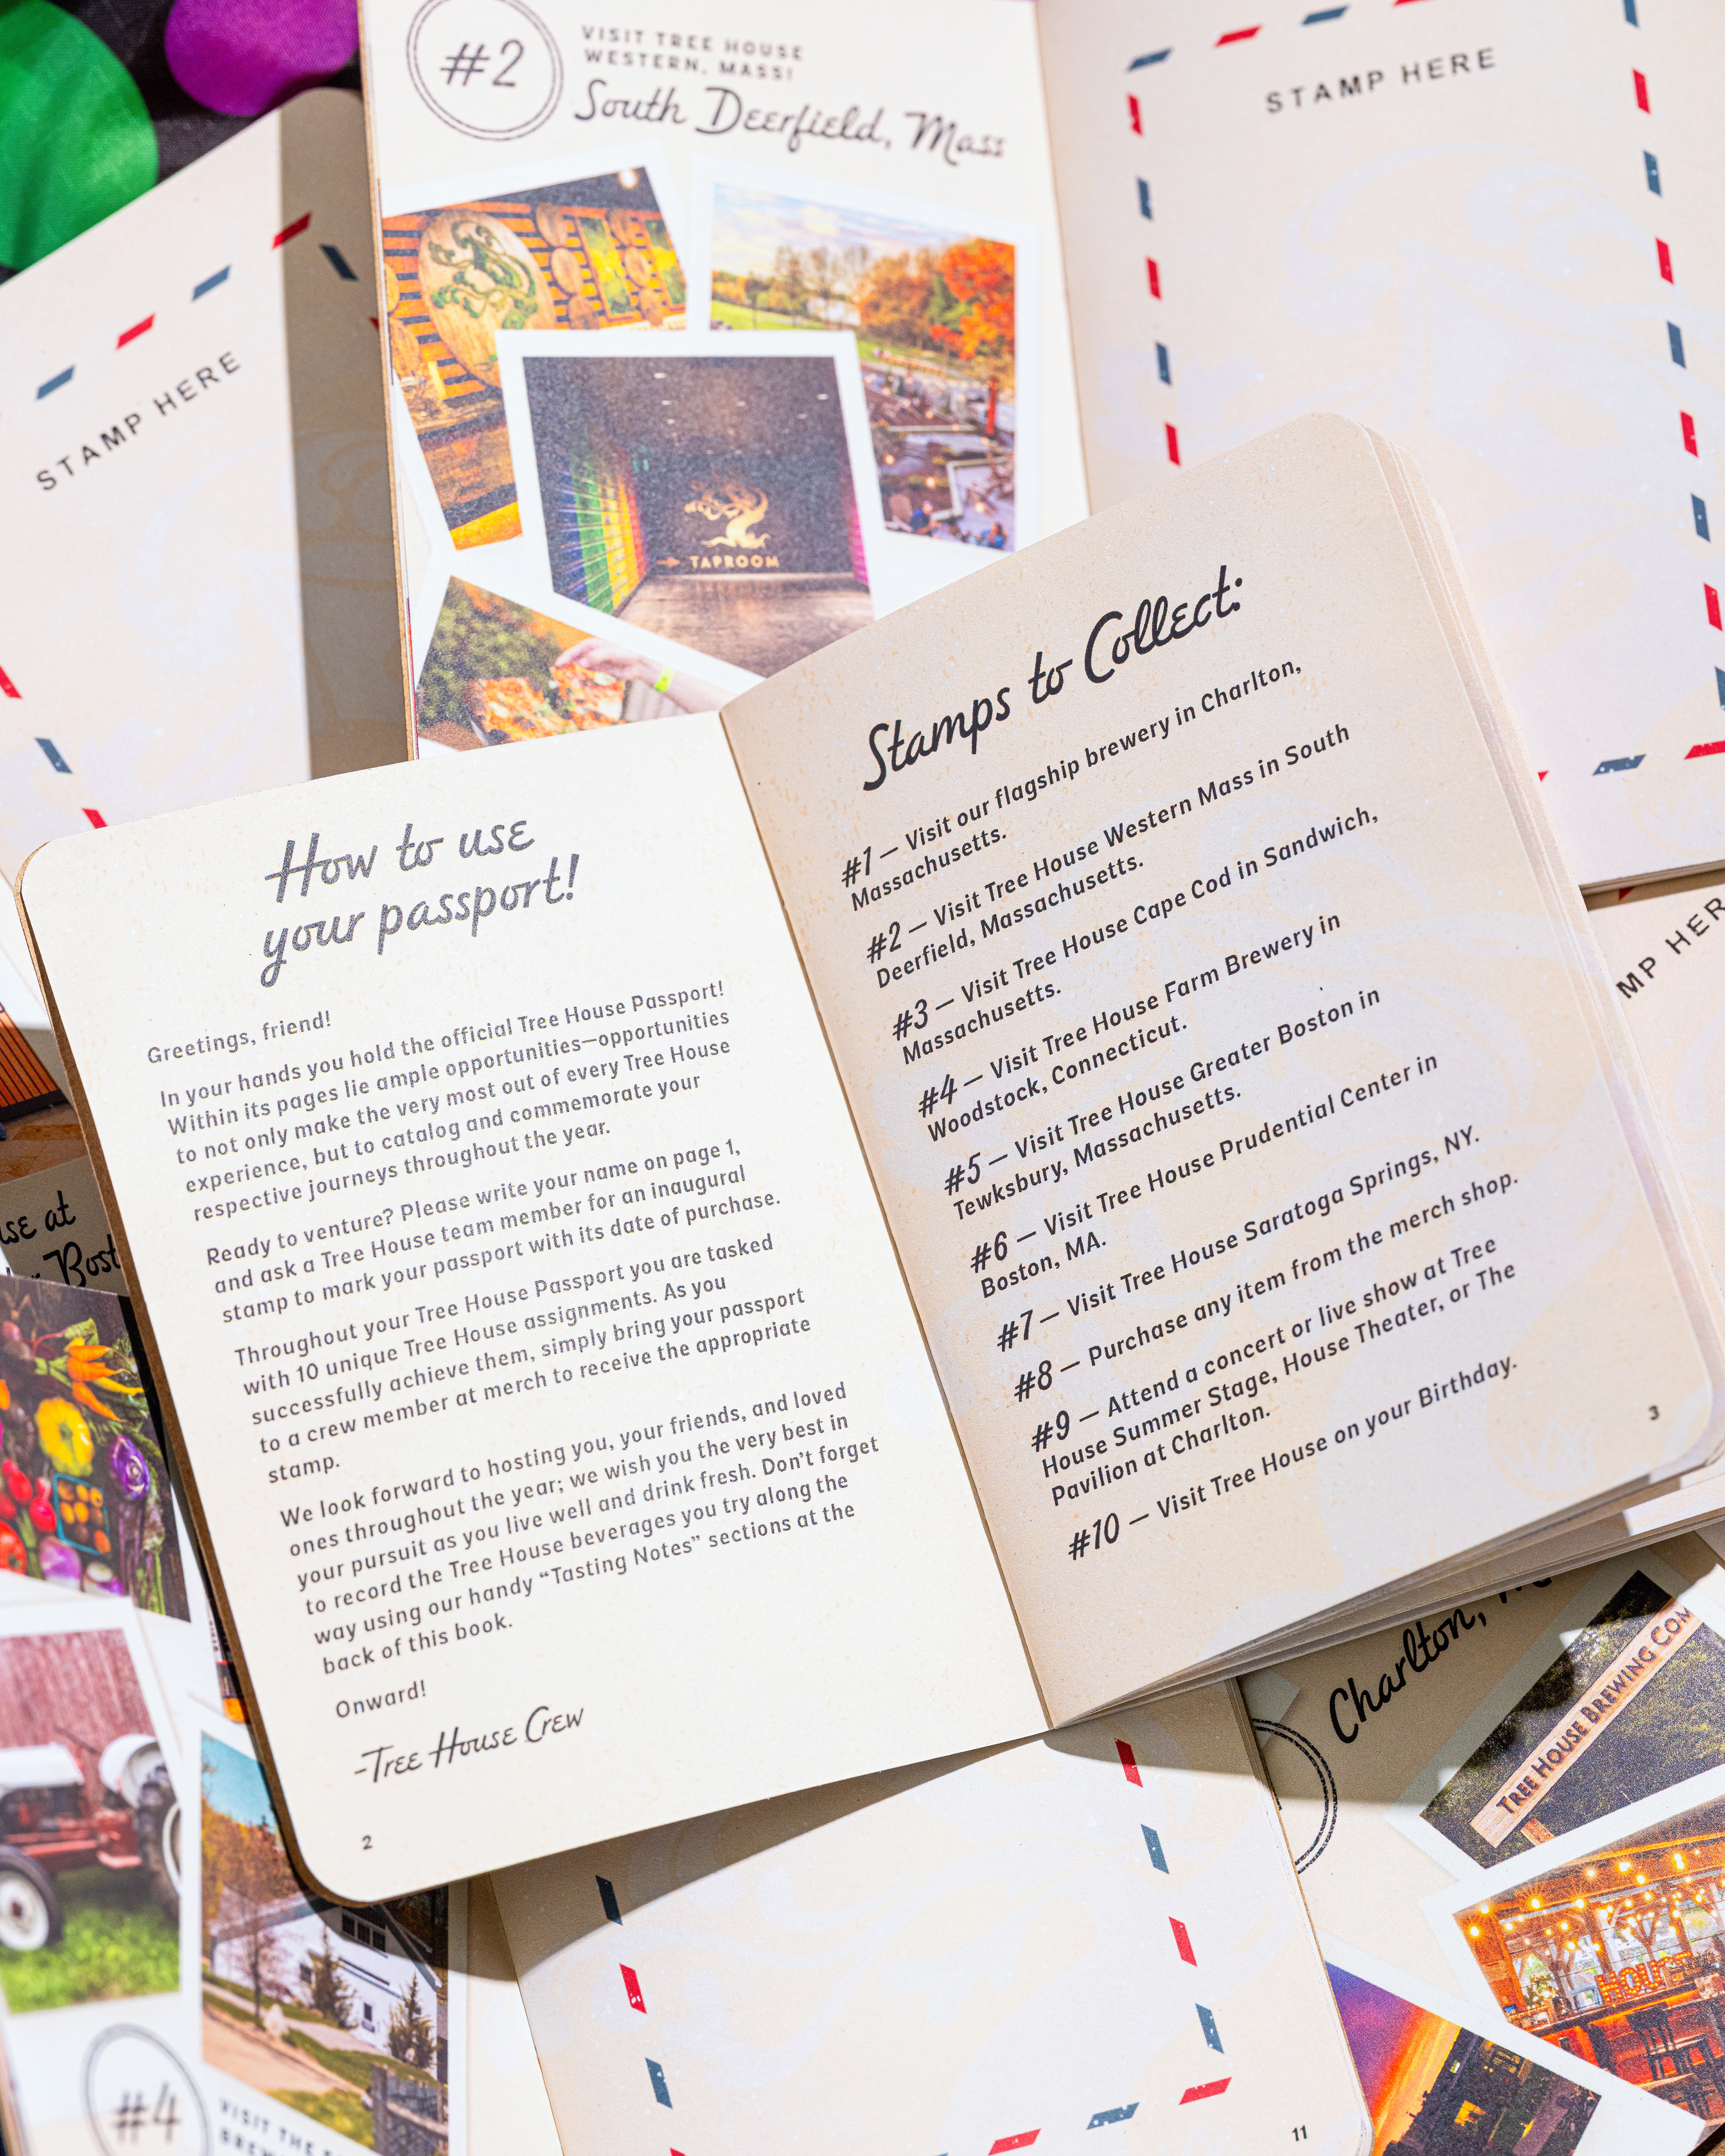 #2
VISIT TREE HOUSE
WESTERN, MASS!
South Deerfield, Mass
STAMP HERE
STAMP HERE
TAPROOM
How to use
your passport!
Greetings, friend!
In your hands you hold the official Tree House Passport!
Within its pages lie ample opportunities—opportunities
to not only make the very most out of every Tree House
experience, but to catalog and commemorate your
respective journeys throughout the year.
Ready to venture? Please write your name on page 1,
and ask a Tree House team member for an inaugural
stamp to mark your passport with its date of purchase.
Throughout your Tree House Passport you are tasked
with 10 unique Tree House assignments. As you
successfully achieve them, simply bring your passport
to a crew member at merch to receive the appropriate
stamp.
We look forward to hosting you, your friends, and loved
ones throughout the year; we wish you the very best in
your pursuit as you live well and drink fresh. Don't forget
to record the Tree House beverages you try along the
way using our handy “Tasting Notes” sections at the
back of this book.
Onward!
-Tree House Crew
2
Stamps to Collect:
#1 — Visit our flagship brewery in Charlton,
Massachusetts.
#2 — Visit Tree House Western Mass in South
Deerfield, Massachusetts.
#3 — Visit Tree House Cape Cod in Sandwich,
Massachusetts.
#4 — Visit Tree House Farm Brewery in
Woodstock, Connecticut.
#5 — Visit Tree House Greater Boston in
Tewksbury, Massachusetts.
#6 — Visit Tree House Prudential Center in
Boston, MA.
#7 — Visit Tree House Saratoga Springs, NY.
#8 — Purchase any item from the merch shop.
#9 — Attend a concert or live show at Tree
House Summer Stage, House Theater, or The
Pavilion at Charlton.
#10 — Visit Tree House on your Birthday.
3
MP HER
se at
Bost
Charlton,
TREE HOUSE BREWING COM
#4
VISIT THE
BREW
11